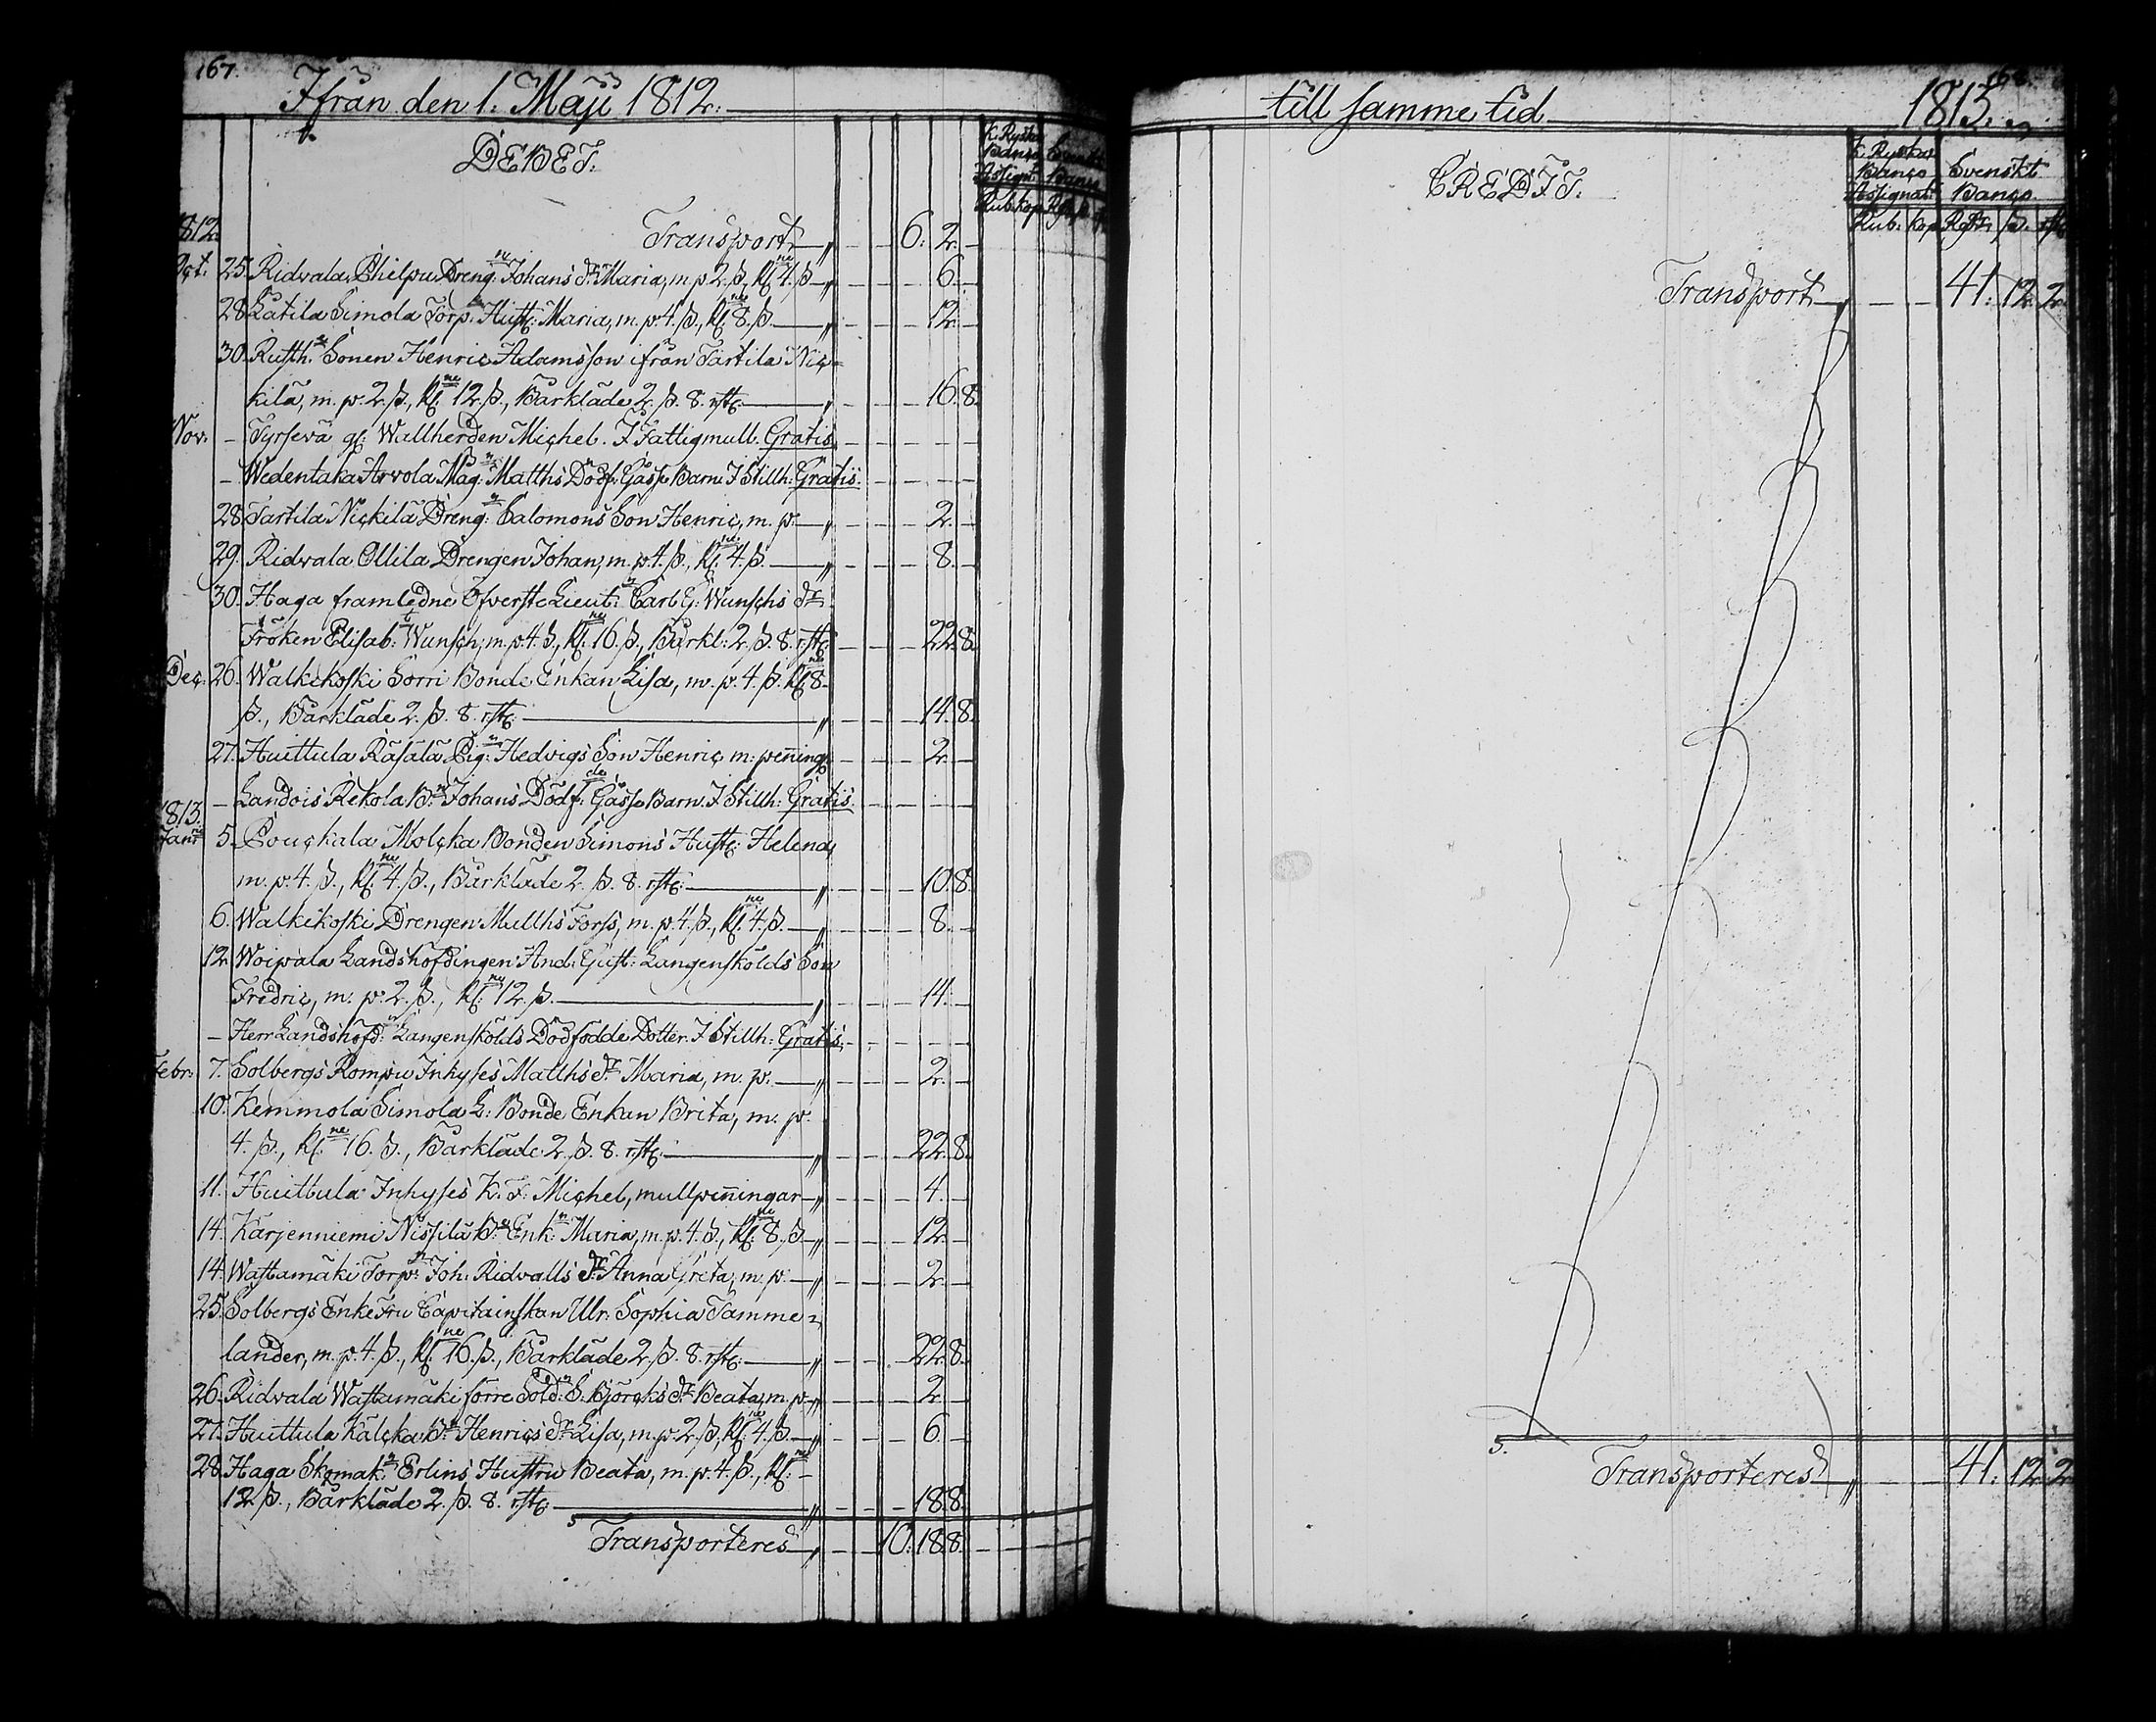 167.
Ifrån den 1. Maji 1812.
DEBET.
K. Ryska
Banco
Assignt.
Rub. kop.
Svenskt
Banco
1812.
Transport 〃 — — 6. 2. —
Oct. 25. Ridvala Phelpu Dreng:n Johans dr Maria, m. p. 2. ß, Kl:ne 4. ß 〃 — — — 6. —
28. Kätila Simola Torp:s Hust: Maria, m. p. 4. ß., Kl:ne 8. ß. — — — 12. —
30. Rusth:s Sonen Henric Adamsson ifrån Tartila Nic-
kilä, m. p. 2. ß., Kl:ne 12. ß., Bårkläde 2. ß. 8. rst: — — — 16. 8.
Nov. — Tyrsevä gl: Wallherden Michel. I Fattigmull. Gratis. — — — —
— Wedentaka Arvola Måg:n Matths Dödf: Gåsse Barn I Stillh: Gratis. — — — —
28. Tartila Nickilä Dreng:n Salomons Son Henric, m. p. 〃 — — — 2. —
29. Ridvala Ollila Drengen Johan, m. p. 4. ß., Kl:ne 4. ß. — 〃 — — — 8. —
30. Haga framledne Öfverste Lieut:n Carl G: Wunschs dr
Fröken Elisab:t Wunsch, m. p. 4. ß, Kl:ne 16. ß., Bårkl: 2. ß. 8. rst: — — — 22. 8.
Dec. 26. Walkikoski Sorri Bonde Enkan Lisa, m. p. 4. ß. Kl:ne 8-
ß., Bårkläde 2. ß. 8. rst: — 〃 — — — 14. 8.
27. Huittula Räsälä Pig:n Hedvigs Son Henric m: pening: — — — 2. —
— Landois Rekola B:n Johans Dödf:de Gåsse Barn I Stillh: Gratis. — — — —
1813.
Janr 5. Pouckala Molcka Bonden Simons Hust: Helena,
m. p. 4. ß., Kl:ne 4. ß., Bårkläde 2. ß. 8. rst: — 〃 — — — 10. 8.
6. Walkikoski Drengen Matths Forss, m. p. 4. ß., Kl:ne 4. ß. — 〃 — — — 8. —
12. Woipala Landshöfdingen And: Gust: Langenskölds Son
Fredric, m. p. 2. ß., Kl:ne 12. ß. — — — 14. —
— Herr Landshöfd:n Langenskölds Dödfödde Dotter I Stillh: Gratis. — — — —
Febr: 7. Solbergs Rompu Inhyses Matths dr Maria, m. p. — 〃 — — — 2. —
10. Kemmola Simola L: Bonde Enkan Brita, m. p.
4. ß., Kl:ne 16. ß., Bårkläde 2. ß. 8. rst: — 〃 — — — 22. 8.
11. Huittula Inhyses K. F: Michel, mullpeningar — 〃 — — — 4. —
14. Karjenniemi Nissilä B:e Enk:n Maria, m. p. 4. ß., Kl:ne 8. ß — 〃 — — — 12. —
14. Wästämäki Torp:n Joh: Ridvalls dr Anna Greta, m. p. — 〃 — — — 2. —
25. Solbergs Enke Fru Capitainskan Ulr: Sophia Tamme-
lander, m. p. 4. ß., Kl:ne 16. ß., Bårkläde 2. ß. 8. rst: — 〃 — — — 22. 8.
26. Ridvala Wästämäki förre Sold:n S: Björcks dr Beata, m. p. 〃 — — — 2. —
27. Huittula Kälcka B:n Henrics dr Lisa, m. p. 2. ß, Kl:ne 4. ß. — 〃 — — — 6. —
28. Haga Skomak:n Erlins Hustru Beata, m. p. 4. ß., Kl:ne-
12. ß., Bårkläde 2. ß. 8. rst: — 〃 — — — 18. 8.
Transporteres — 〃 — — 10. 18. 8.
168.
till samme tid 1813.
CREDIT.
K. Ryska
Banco
Assignat:
Rub. kop.
Svenskt
Banco.
Rdr. ß. rst:
Transport 〃 — — 41. 12. 2.
Transporteres 〃 — — 41. 12. 2.